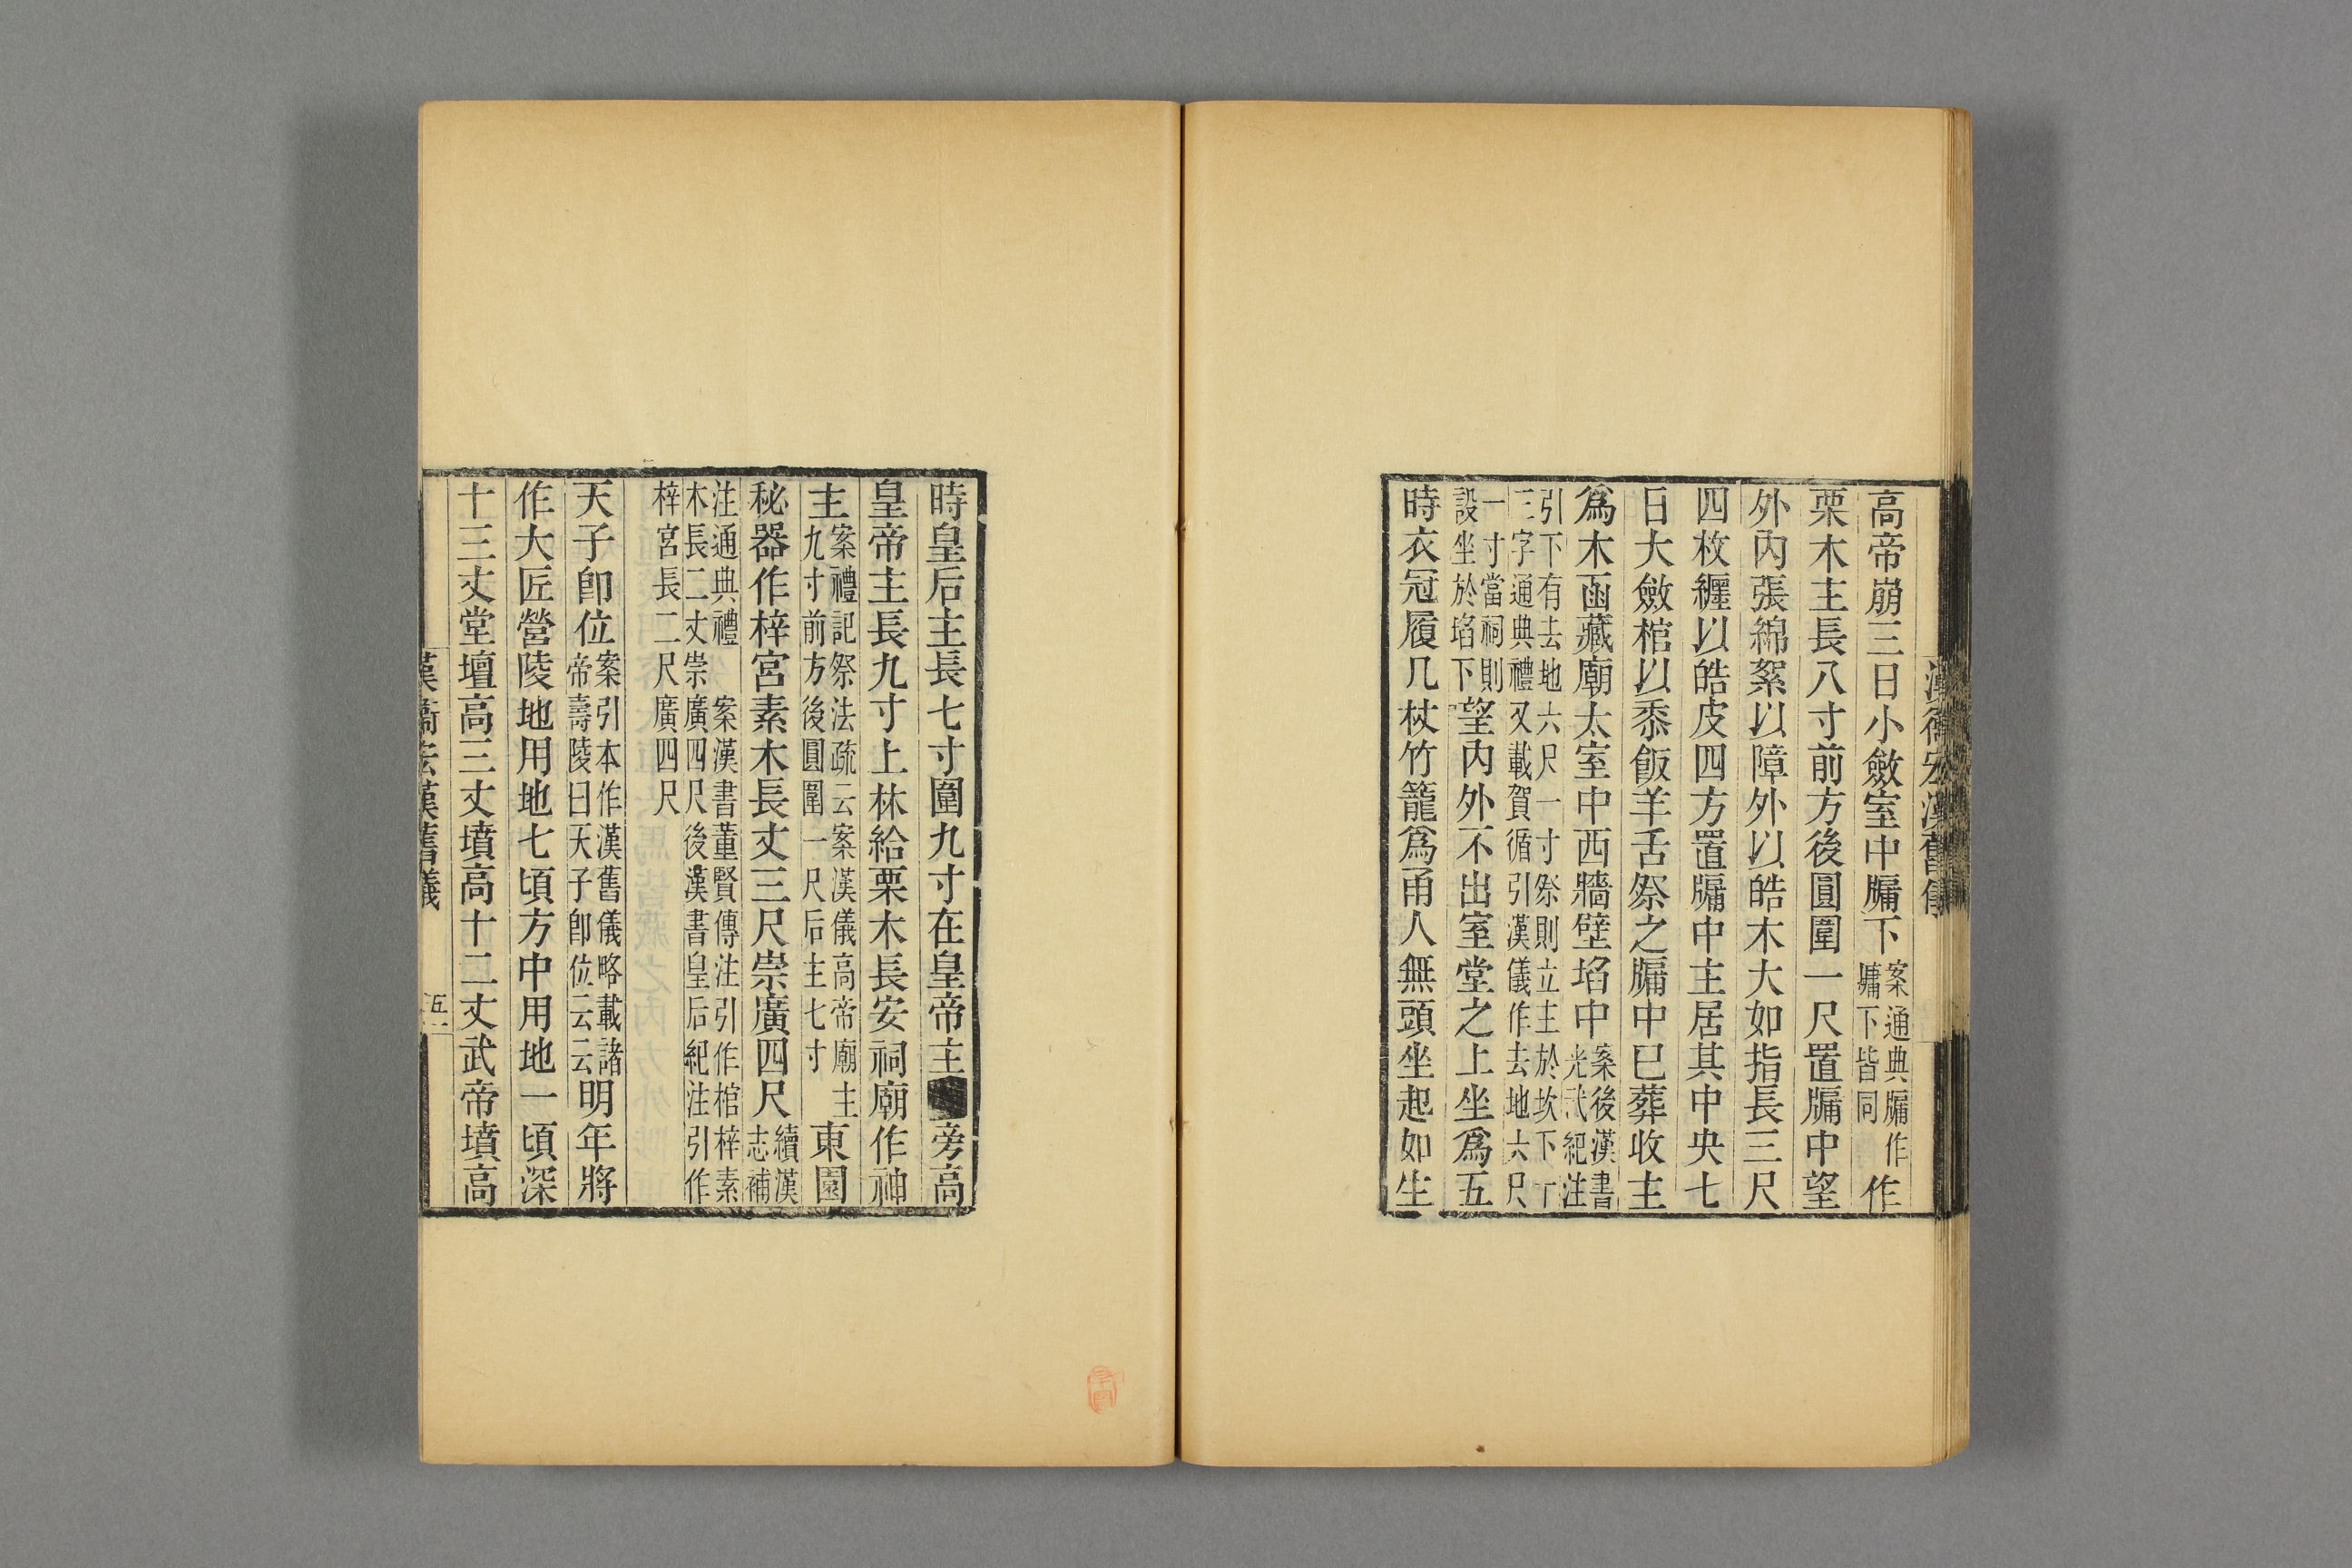 漢衞宏漢舊儀
高帝崩三日小斂室中牖下案通典牖作墉下皆同作
栗木主長八寸前方後圓圍一尺置牖中望
外內張緜絮以障外以皓木大如指長三尺
四枚纏以皓皮四方置牖中主居其中央七
日大斂棺以黍飯羊舌祭之牖中已葬收主
爲木函藏廟太室中西牆壁埳中案後漢書光武紀注
引下有去地六尺一寸祭則立主於坎下十三字通典禮又載賀循引漢儀作去地六尺
一寸當祠則設坐於埳下望內外不出室堂之上坐爲五
時衣冠履几杖竹籠爲甬人無頭坐起如生
時皇后主長七寸圍九寸在皇帝主旁高
皇帝主長九寸上林給栗木長安祠廟作神
主案禮記祭法疏云案漢儀高帝廟主九寸前方後圓圍一尺后主七寸東園
秘器作梓宮素木長丈三尺崇廣四尺續漢志補
注通典禮 案漢書董賢傳注引作棺梓素木長二丈崇廣四尺後漢書皇后紀注引作
梓宮長二尺廣四尺
天子卽位案引本作漢舊儀略載諸帝壽陵曰天子卽位云云明年將
作大匠營陵地用地七頃方中用地一頃深
十三丈堂壇高三丈墳高十二丈武帝墳高
漢衞宏漢舊儀 五